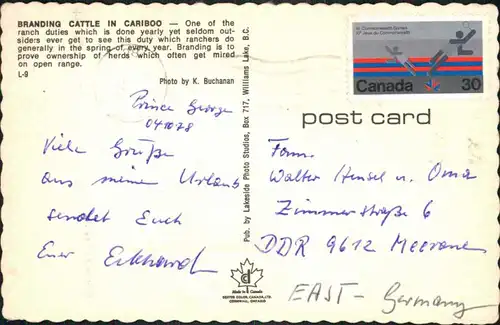 BRANDING CATTLE IN CARIBOO — One of the
ranch duties which is done yearly yet seldom out-
siders ever get to see this duty which ranchers do
generally in the spring of every year. Branding is to
prove ownership of herds which often get mired
on open range.
L-9
Photo by K. Buchanan
Prince George
041078
Viele Grüße
aus meine Urlaub
sendet Euch
Euer Eckhardt
Pub. by Lakeside Photo Studios, Box 717, Williams Lake, B.C.
Made in Canada
DEXTER COLOR, CANADA, LTD.
CORNWALL, ONTARIO
XI Commonwealth Games
XIes Jeux du Commonwealth
Canada 30
post card
Fam.
Walter Hensel u. Oma
Zimmerstraße 6
DDR 9612 Meerane
EAST - Germany